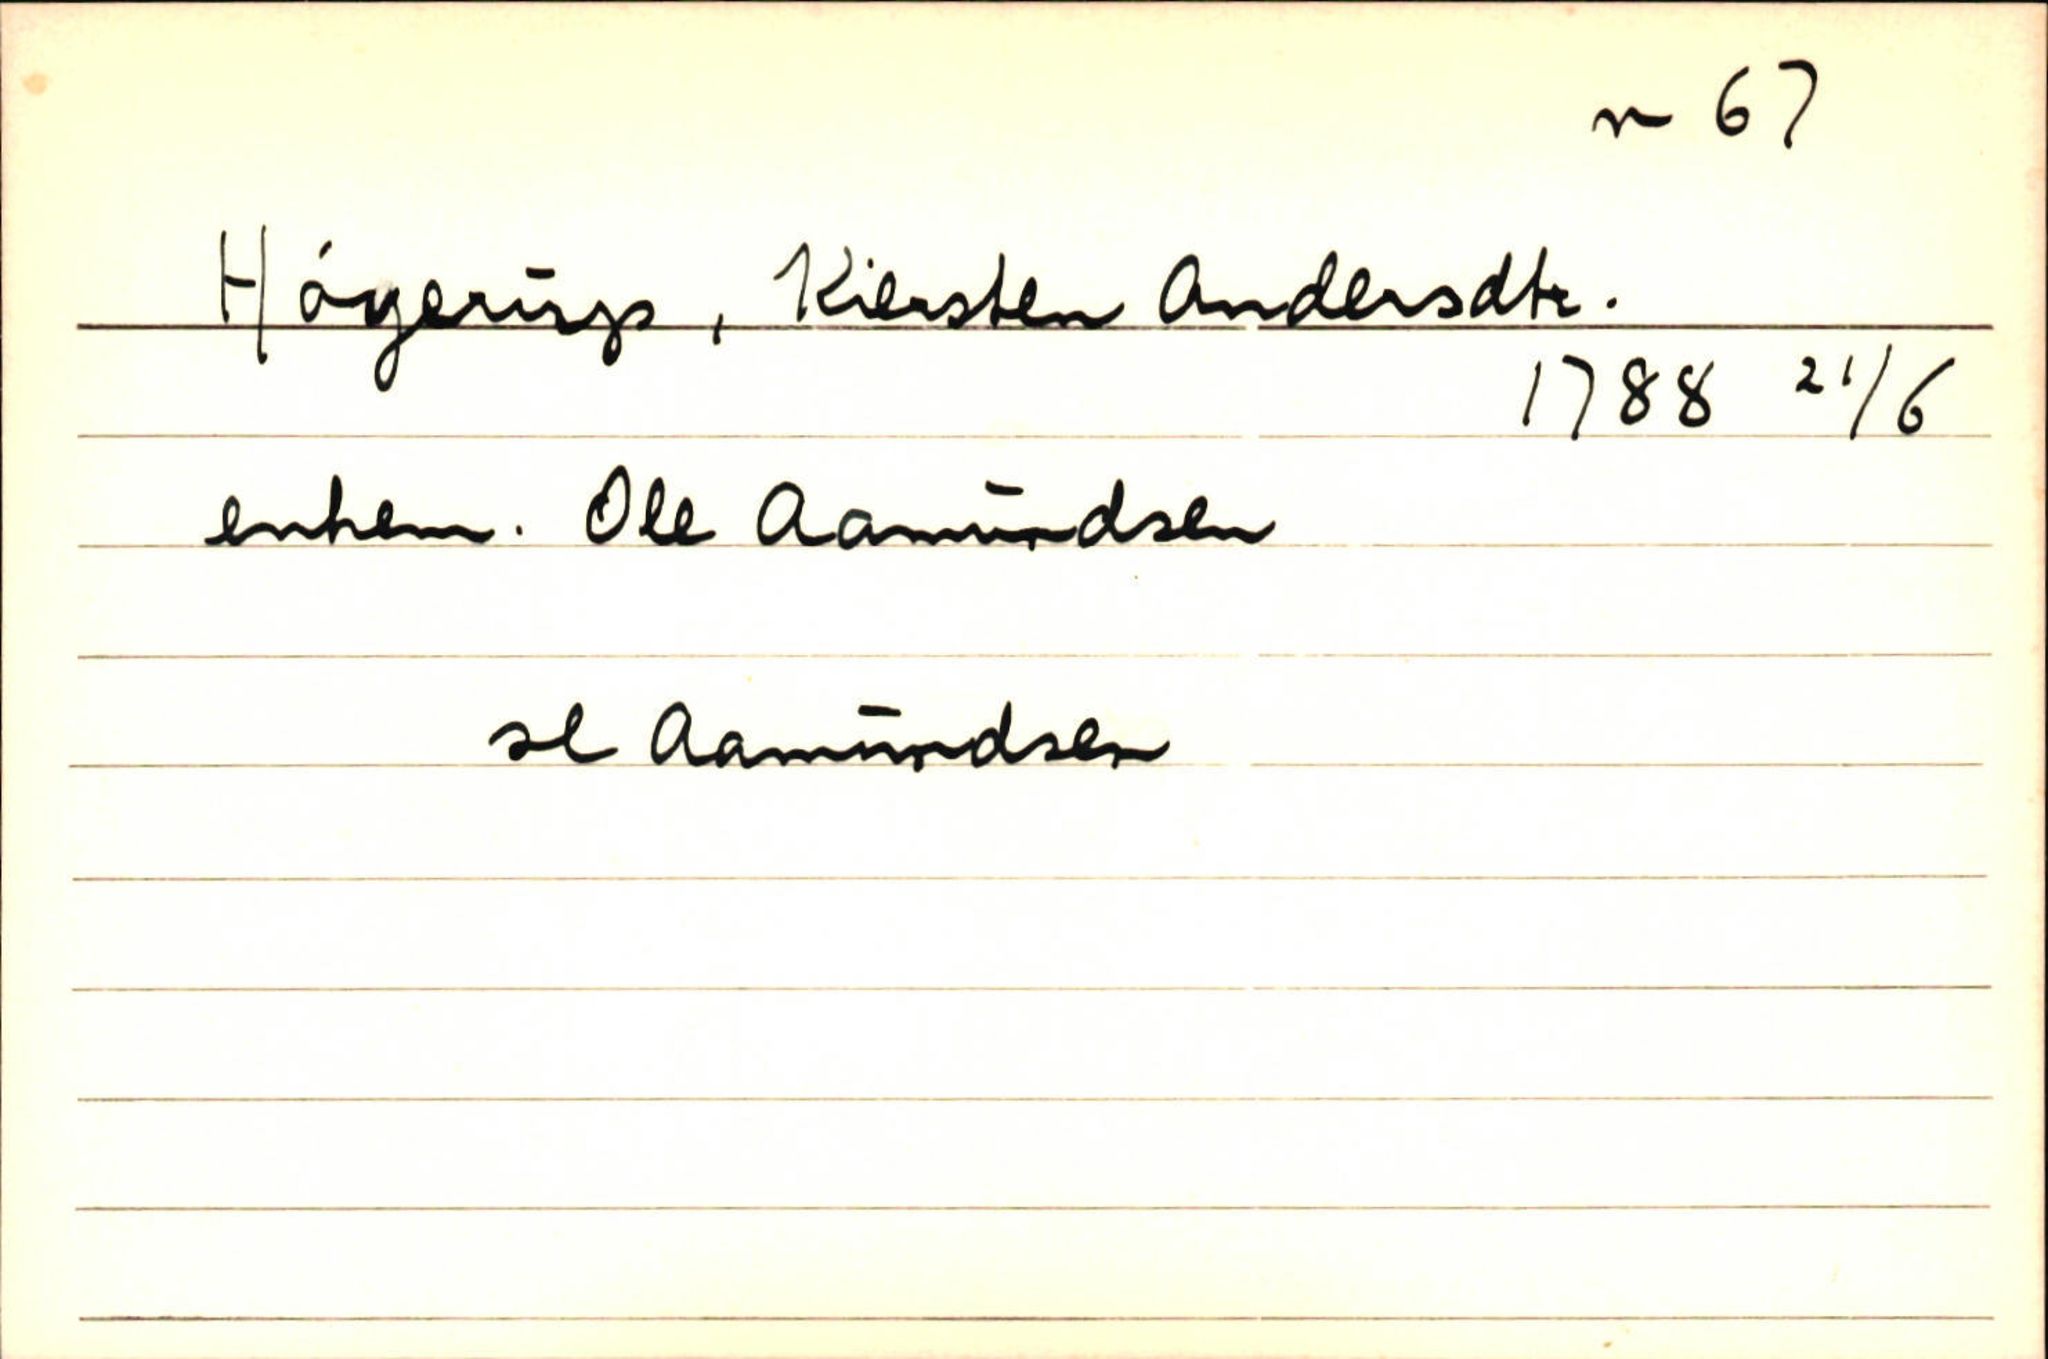 n 67
Høyerups, Kiersten Andersdtr.
1788 21/6
enkem. Ole Aamundsen
se Aamundsen